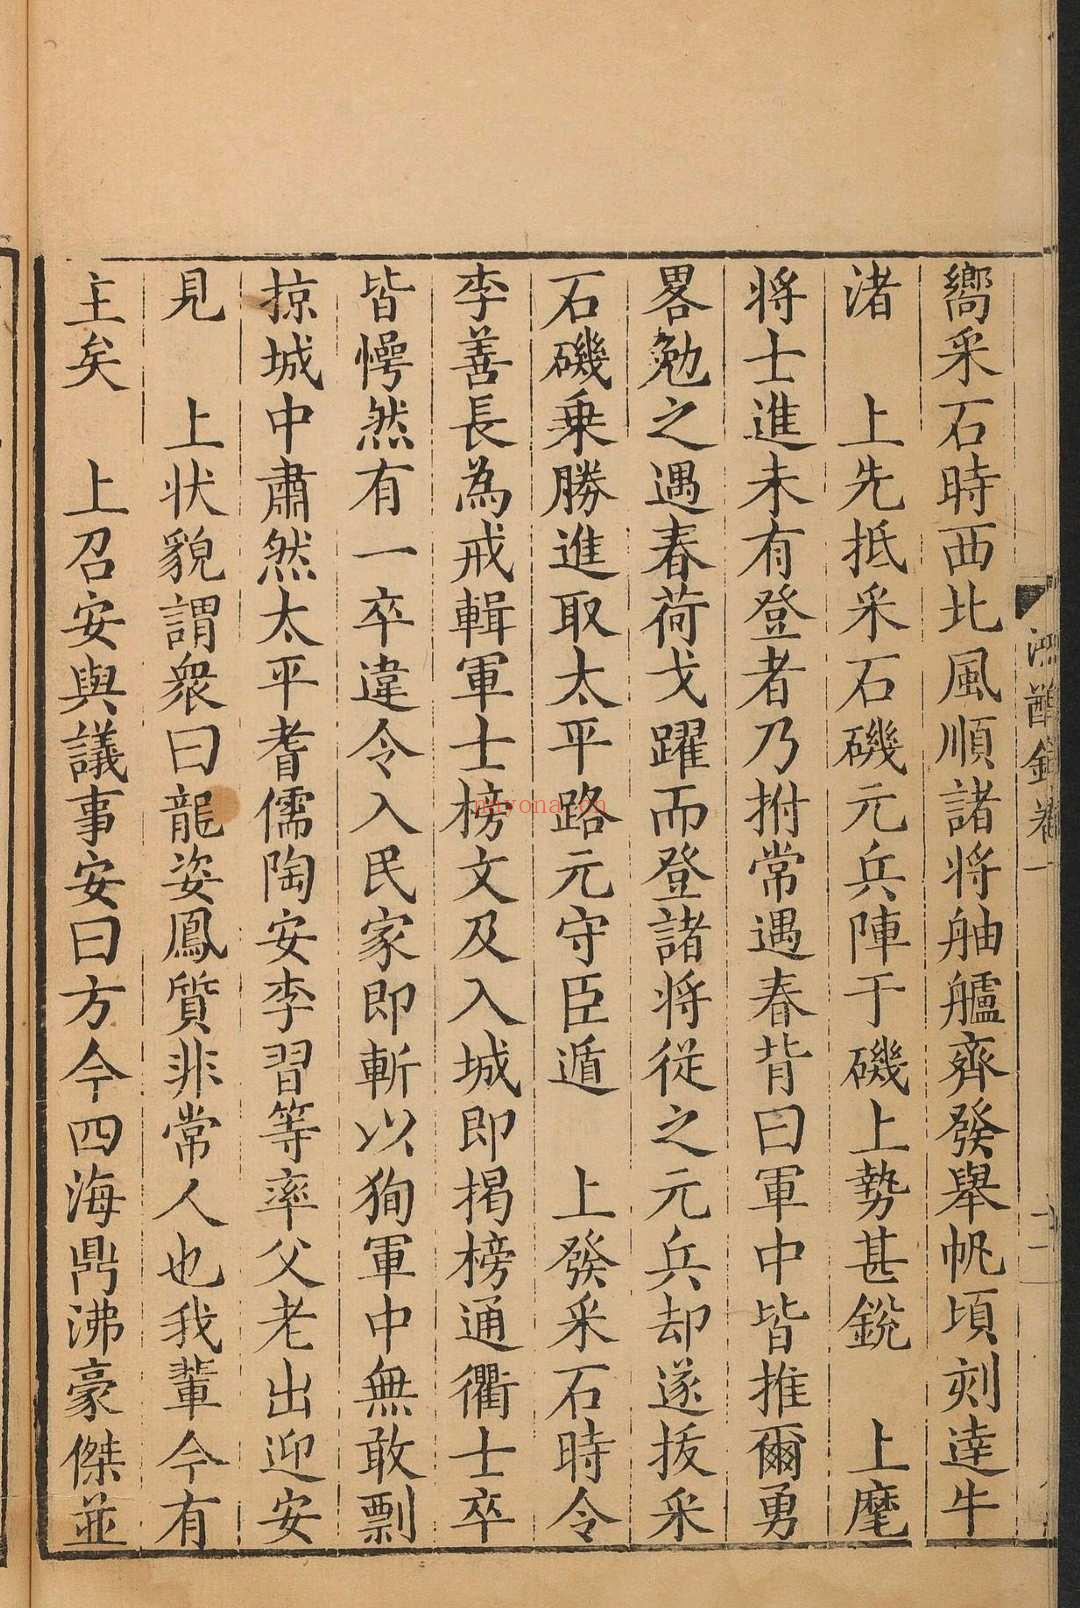 嚮采石時西北風順諸將舳艫齊發舉帆頃刻達牛
渚　上先抵采石磯元兵陣于磯上勢甚銳　上麾
將士進未有登者乃拊常遇春背曰軍中皆推爾勇
畧勉之遇春荷戈躍而登諸將從之元兵却遂拔采
石磯乘勝進取太平路元守臣遁　上發采石時令
李善長為戒輯軍士榜文及入城即揭榜通衢士卒
皆愕然有一卒違令入民家即斬以狥軍中無敢剽
掠城中肅然太平耆儒陶安李習等率父老出迎安
見　上狀貌謂衆曰龍姿鳳質非常人也我輩今有
主矣　上召安與議事安曰方今四海鼎沸豪傑並
鴻猷錄卷一
miyona.cn